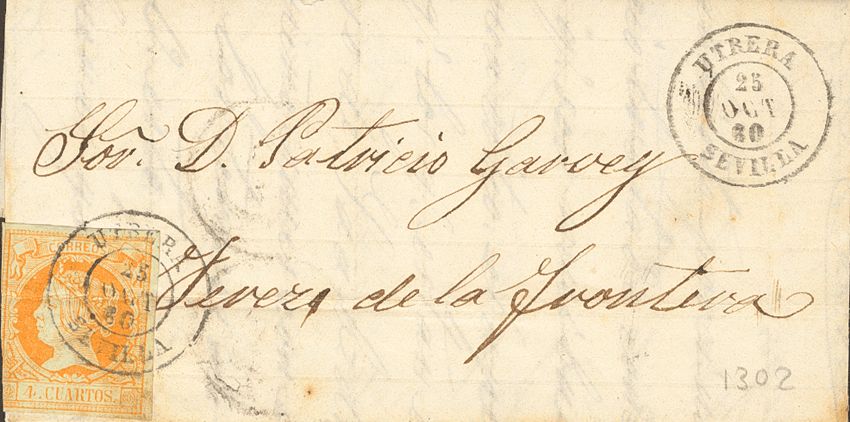 UTRERA
25
OCT
60
SEVILLA
Sor. D. Patricio Garvey
Jerez de la Frontera
CORREOS
UTRERA
25
OCT
60
SEVILLA
4 CUARTOS.
1302